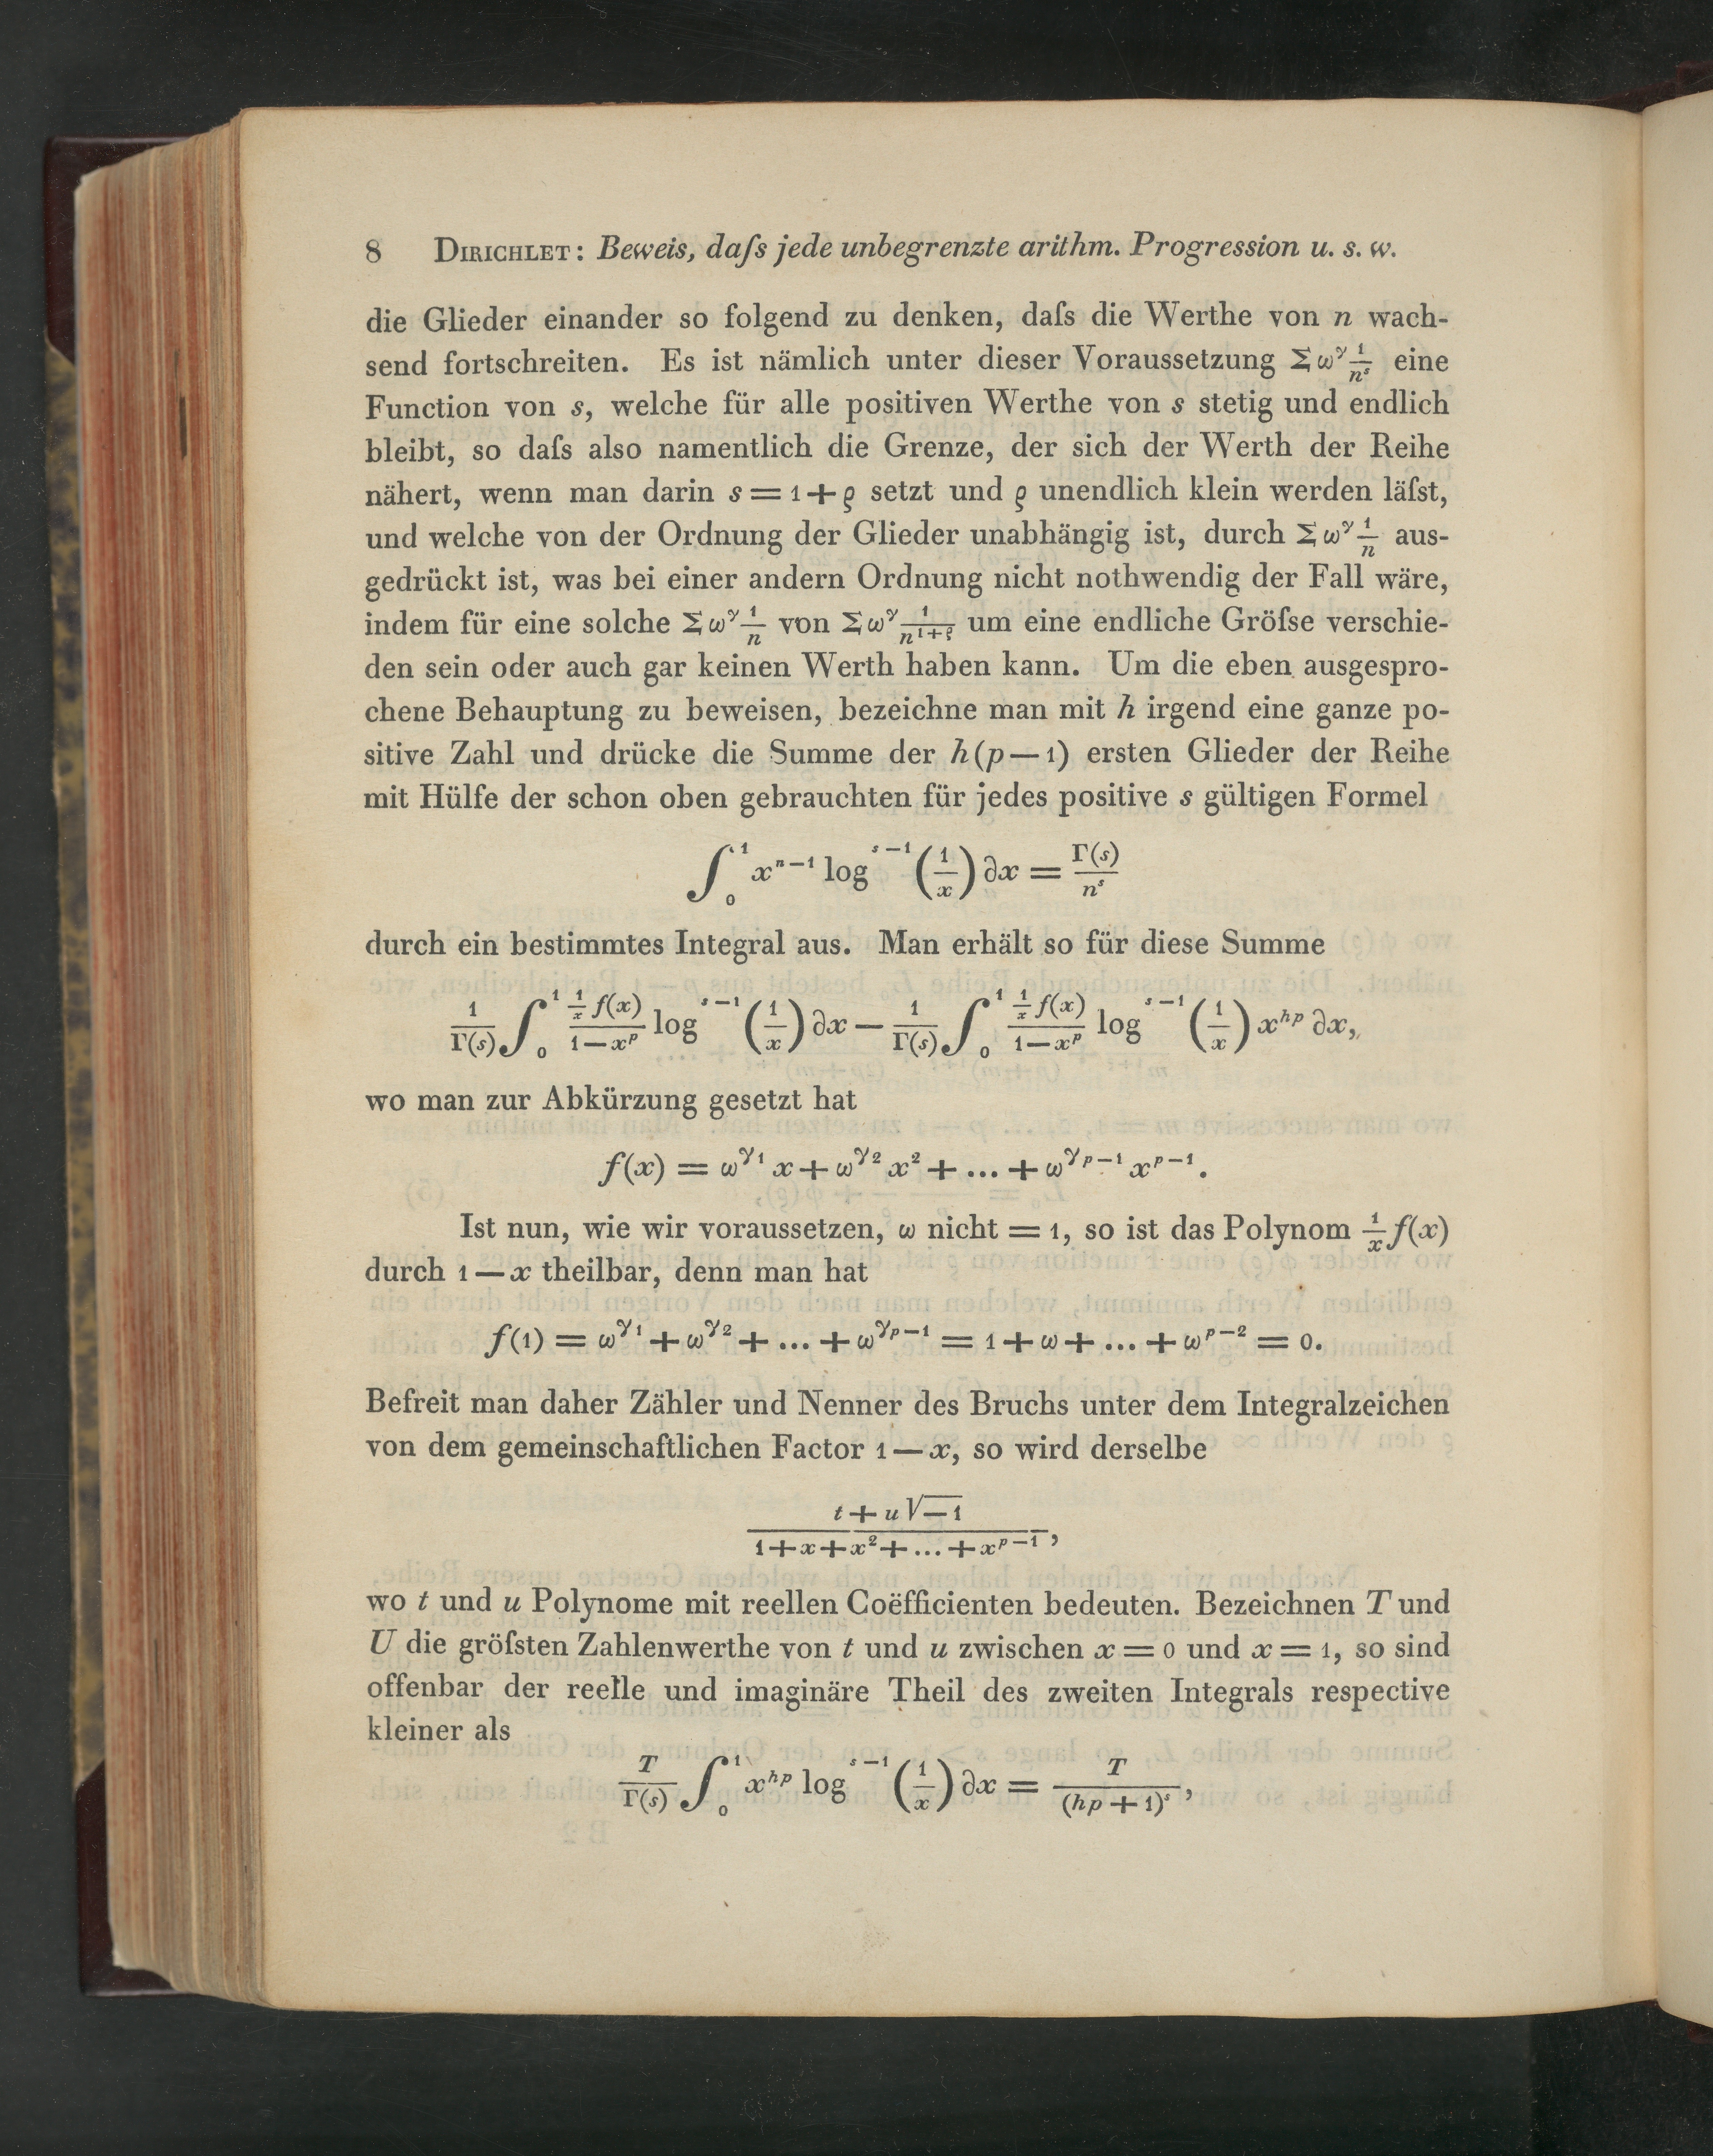 8 DIRICHLET: Beweis, daſs jede unbegrenzte arithm. Progression u. s. w.
die Glieder einander so folgend zu denken, daſs die Werthe von n wach-
send fortschreiten. Es ist nämlich unter dieser Voraussetzung Σ ω^γ 1/n^s eine
Function von s, welche für alle positiven Werthe von s stetig und endlich
bleibt, so daſs also namentlich die Grenze, der sich der Werth der Reihe
nähert, wenn man darin s = 1 + ϱ setzt und ϱ unendlich klein werden läſst,
und welche von der Ordnung der Glieder unabhängig ist, durch Σ ω^γ 1/n aus-
gedrückt ist, was bei einer andern Ordnung nicht nothwendig der Fall wäre,
indem für eine solche Σ ω^γ 1/n von Σ ω^γ 1/n^{1+ϱ} um eine endliche Gröſse verschie-
den sein oder auch gar keinen Werth haben kann. Um die eben ausgespro-
chene Behauptung zu beweisen, bezeichne man mit h irgend eine ganze po-
sitive Zahl und drücke die Summe der h(p — 1) ersten Glieder der Reihe
mit Hülfe der schon oben gebrauchten für jedes positive s gültigen Formel
∫_0^1 x^{n-1} log^{s-1} (1/x) ∂x = Γ(s)/n^s
durch ein bestimmtes Integral aus. Man erhält so für diese Summe
1/Γ(s) ∫_0^1 (1/x f(x))/(1 — x^p) log^{s-1} (1/x) ∂x — 1/Γ(s) ∫_0^1 (1/x f(x))/(1 — x^p) log^{s-1} (1/x) x^{hp} ∂x,
wo man zur Abkürzung gesetzt hat
f(x) = ω^{γ_1} x + ω^{γ_2} x^2 + ... + ω^{γ_{p-1}} x^{p-1}.
Ist nun, wie wir voraussetzen, ω nicht = 1, so ist das Polynom 1/x f(x)
durch 1 — x theilbar, denn man hat
f(1) = ω^{γ_1} + ω^{γ_2} + ... + ω^{γ_{p-1}} = 1 + ω + ... + ω^{p-2} = 0.
Befreit man daher Zähler und Nenner des Bruchs unter dem Integralzeichen
von dem gemeinschaftlichen Factor 1 — x, so wird derselbe
(t + u √—1)/(1 + x + x^2 + ... + x^{p-1}),
wo t und u Polynome mit reellen Coëfficienten bedeuten. Bezeichnen T und
U die gröſsten Zahlenwerthe von t und u zwischen x = 0 und x = 1, so sind
offenbar der reelle und imaginäre Theil des zweiten Integrals respective
kleiner als
T/Γ(s) ∫_0^1 x^{hp} log^{s-1} (1/x) ∂x = T/(hp + 1)^s,